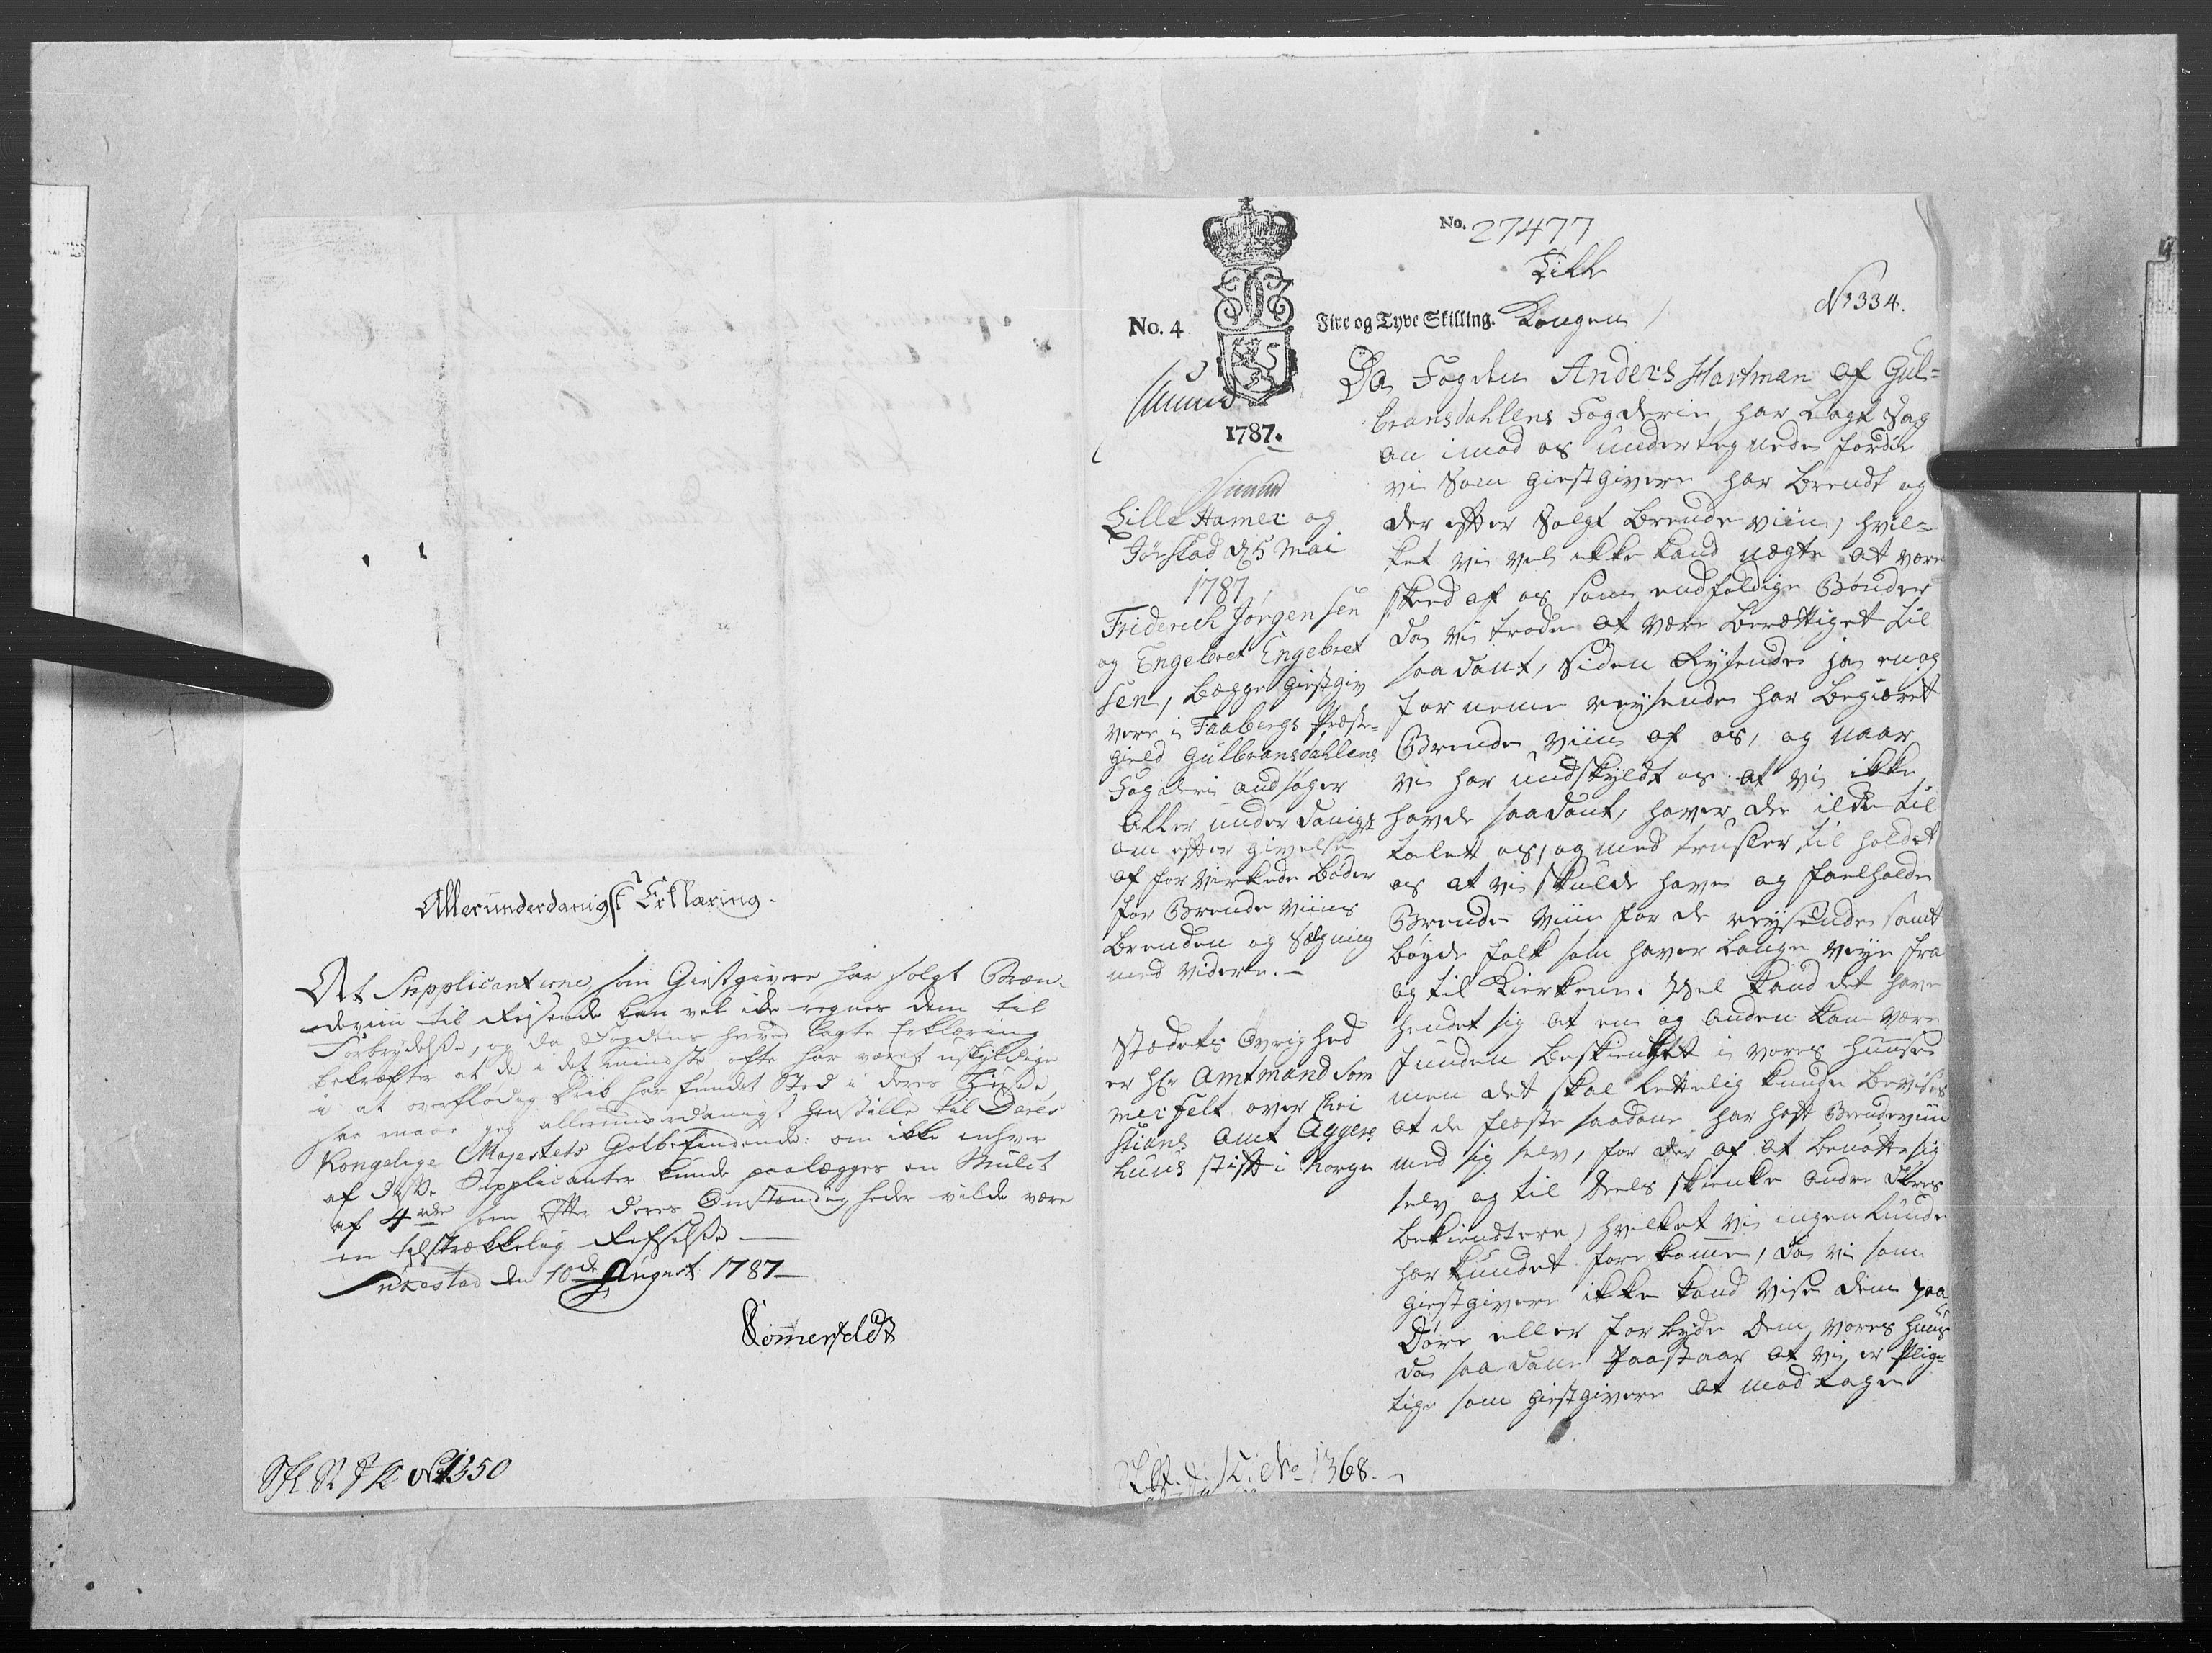 Allerunderdanigst Erklæring.
At Supplicanterne, som Giestgivere har solgt Bræn-
deviin til Reisende kan vel ikke regnes dem til
Forbrydelse, og da Fogdens herved lagte Erklæring
bekræfter at de i det mindste ofte har været uskyldige
i at overflødig Drik har fundet Sted i deres Huuse,
saa maae jeg allerunderdanigst henstille til Deres
Kongelige Majestets Gotbefindende: om ikke enhver
af disse Supplicanter kunde paalægges en Mulct
af 4 rdr som efter deres Omstændigheder vilde være
en tilstrækkelig Refselse —
den 10de August 1787 —
Sommerfeldt
No 1350
No. 27477
Till
No 334.
No. 4
Fire og Tyve Skilling. Kongen /
1787.
Lille Hamer og
Jørstad d 5 Mai
1787
Friderich Jørgensen
og Engebret Engebret
sen, begge giestgiv
vere i Faabergs Præste-
gield Gulbransdahlens
Fogderi andsøger
aller under danigst
om efter givelse
af for virkede bøder
for Brende viins
brenden og Sælgning
med videre. —
Stædets Øvrighed
er Hr Amtmand Som
mer felt over Chri
stians Amt Aggers
huus stift i Norge
Da Fogden Anders Hartman af Gul=
bransdahlens Fogderie har lagt Sag
an imod os undertegnede fordi
vi Som giestgivere har brendt og
der efter Solgt brende viin, hvil=
ket vi vel ikke kand nægte at være
skeed af os som eenfoldige Bønder
da vi trode at være berettiget til
saadant, siden Rejsende ja endog
fornemme reysende har begiæret
Brende viin af os, og naar
vi har undskyldt os at vi ikke
havde saadant, haver de ilde til
talett os, og med trusler til holdet
os at vi skulde have og forholde
Brende viin for de reysende samt
bøyde folk som haver lange veye fra
og til Kierken. Vel kand det have
hendet sig at en og anden kan være
funden beskienket i vores Huuse
men det skal lettelig kunde bevises
at de fleste saadane har haft Brendeviin
med sig selv, for der af at benøtte sig
selv og til deels skienke andre deres
bekiendtere, hvilket vi ingenlunde
har kundet forekomme, da vi som
giestgivere ikke kand vise dem paa
Døre eller forbyde dem vores huus
da saadane paastaar at vi er Plig=
tige som giestgivere at modtage
No 1368.